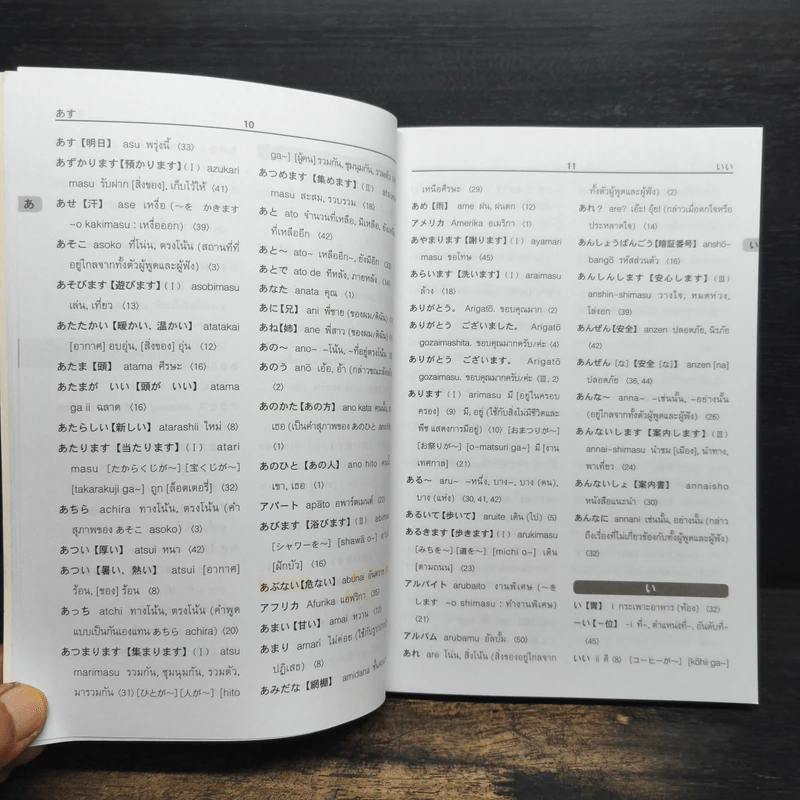 あす
10
あす【明日】 asu พรุ่งนี้ (33)
あずかります【預かります】(I) azukari
masu รับฝาก [สิ่งของ], เก็บไว้ให้ (41)
あ
あせ【汗】 ase เหงื่อ (～を かきます
~o kakimasu : เหงื่อออก) (39)
あそこ asoko ที่โน่น, ตรงโน้น (สถานที่ที่
อยู่ไกลจากทั้งตัวผู้พูดและผู้ฟัง) (3)
あそびます【遊びます】(I) asobimasu
เล่น, เที่ยว (13)
あたたかい【暖かい、温かい】 atatakai
[อากาศ] อบอุ่น, [สิ่งของ] อุ่น (12)
あたま【頭】 atama ศีรษะ (16)
あたまが いい【頭が いい】 atama
ga ii ฉลาด (16)
あたらしい【新しい】 atarashii ใหม่ (8)
あたります【当たります】(I) atari
masu [たからくじが～] [宝くじが～]
[takarakuji ga~] ถูก [ล็อตเตอรี่] (32)
あちら achira ทางโน้น, ตรงโน้น (คำ
สุภาพของ あそこ asoko) (3)
あつい【厚い】 atsui หนา (42)
あつい【暑い、熱い】 atsui [อากาศ]
ร้อน, [ของ] ร้อน (8)
あっち atchi ทางโน้น, ตรงโน้น (คำพูด
แบบเป็นกันเองแทน あちら achira) (20)
あつまります【集まります】(I) atsu
marimasu รวมกัน, ชุมนุมกัน, รวมตัว,
มารวมกัน (31) [ひとが～] [人が～] [hito
ga~] [ผู้คน] รวมกัน, ชุมนุมกัน, รวมตัว
あつめます【集めます】(II) atsu
masu สะสม, รวบรวม (18)
あと ato จำนวนที่เหลือ, มีเหลือ,
ที่เหลืออีก (42)
あと～ ato~ เหลืออีก~, ยังมีอีก
あとで ato de ทีหลัง, ภายหลัง (14)
あなた anata คุณ (1)
あに【兄】 ani พี่ชาย (ของผม/ดิฉัน)
あね【姉】 ane พี่สาว (ของผม/ดิฉัน)
あの～ ano~ ~โน้น, ~ที่อยู่ตรงโน้น
あのう anō เอ้อ, อ้า (กล่าวขณะลังเล
(2)
あのかた【あの方】 ano kata คนนั้น,
เธอ (เป็นคำสุภาพของ あのひと ano hito)
(1)
あのひと【あの人】 ano hito คนนั้น,
เขา, เธอ (1)
アパート apāto อพาร์ตเมนต์ (22)
あびます【浴びます】(II) abimasu
[シャワーを～] [shawā o~] อาบ
[ฝักบัว] (16)
あぶない【危ない】 abunai อันตราย
アフリカ Afurika แอฟริกา
あまい【甘い】 amai หวาน (12)
あまり amari ไม่ค่อย (ใช้กับรูป
ปฏิเสธ) (8)
あみだな【網棚】 amidana
11
いい
い
เหนือศีรษะ (29)
あめ【雨】 ame ฝน, ฝนตก (12)
アメリカ Amerika อเมริกา (1)
あやまります【謝ります】(I) ayamari
masu ขอโทษ (45)
あらいます【洗います】(I) araimasu
ล้าง (18)
ありがとう。 Arigatō. ขอบคุณมาก (2)
ありがとう ございました。 Arigatō
gozaimashita. ขอบคุณมากครับ/ค่ะ (4)
ありがとう ございます。 Arigatō
gozaimasu. ขอบคุณมากครับ/ค่ะ (III, 2)
あります(I) arimasu มี [อยู่ในครอบ
ครอง] (9) มี, อยู่ (ใช้กับสิ่งไม่มีชีวิตและ
พืช แสดงการมีอยู่) (10) [おまつりが～]
[お祭りが～] [o-matsuri ga~] มี [งาน
เทศกาล] (21)
ある～ aru~ ~หนึ่ง, บาง~, บาง (คน),
บาง (แห่ง) (30, 41, 42)
あるいて【歩いて】 aruite เดิน (ไป) (5)
あるきます【歩きます】(I) arukimasu
[みちを～] [道を～] [michi o~] เดิน
[ตามถนน] (23)
アルバイト arubaito งานพิเศษ (～を
します ~o shimasu : ทำงานพิเศษ)
(21)
アルバム arubamu อัลบั้ม (50)
あれ are โน่น, สิ่งโน้น (สิ่งของอยู่ไกลจาก
ทั้งตัวผู้พูดและผู้ฟัง) (2)
あれ？ are? เอ๊ะ! อุ๊ย! (กล่าวเมื่อตกใจหรือ
ประหลาดใจ) (14)
あんしょうばんごう【暗証番号】 anshō-
bangō รหัสส่วนตัว (16)
あんしんします【安心します】(III)
anshin-shimasu วางใจ, หมดห่วง,
โล่งอก (39)
あんぜん【安全】 anzen ปลอดภัย, นิรภัย
(42)
あんぜん [な]【安全 [な]】 anzen [na]
ปลอดภัย (36, 44)
あんな～ anna~ ~เช่นนั้น, ~อย่างนั้น
(อยู่ไกลจากทั้งตัวผู้พูดและผู้ฟัง) (26)
あんないします【案内します】(III)
annai-shimasu นำชม [เมือง], นำทาง,
พาเที่ยว (24)
あんないしょ【案内書】 annaisho
หนังสือแนะนำ (30)
あんなに annani เช่นนั้น, อย่างนั้น (กล่าว
ถึงเรื่องที่ไม่เกี่ยวข้องกับทั้งผู้พูดและผู้ฟัง)
(32)
い
い【胃】 i กระเพาะอาหาร (ท้อง) (32)
～い【～位】 ~i ที่~, ตำแหน่งที่~, อันดับที่~
(45)
いい ii ดี (8) [コーヒーが～] [kōhii ga~]